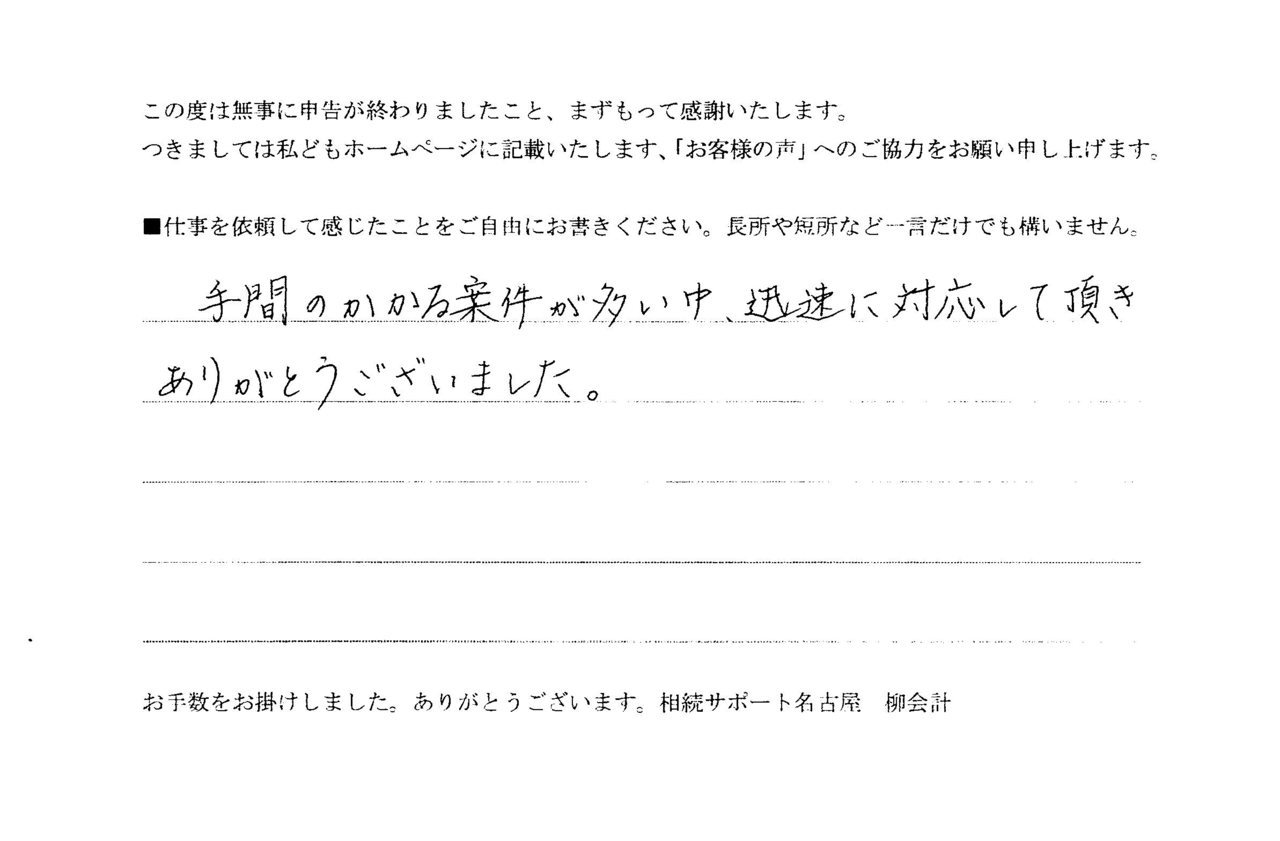 この度は無事に申告が終わりましたこと、まずもって感謝いたします。
つきましては私どもホームページに記載いたします、「お客様の声」へのご協力をお願い申し上げます。
■仕事を依頼して感じたことをご自由にお書きください。長所や短所など一言だけでも構いません。
手間のかかる案件が多い中、迅速に対応して頂き
ありがとうございました。
お手数をお掛けしました。ありがとうございます。相続サポート名古屋　柳会計